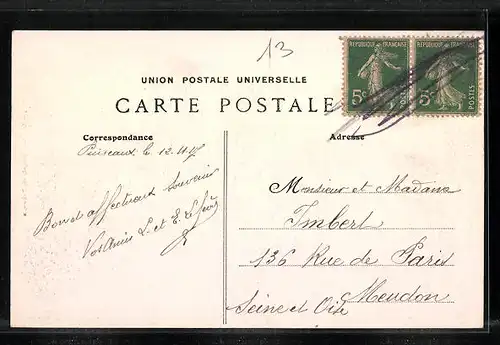 13
RÉPUBLIQUE FRANÇAISE
5c
POSTES
RÉPUBLIQUE FRANÇAISE
5c
POSTES
UNION POSTALE UNIVERSELLE
CARTE POSTALE
Correspondance
Puiseaux le 12.11.17
Bon et affectueux souvenir
Vos Amis L. et E.
Adresse
Monsieur et Madame
Imbert
136 Rue de Paris
Meudon
Seine et Oise